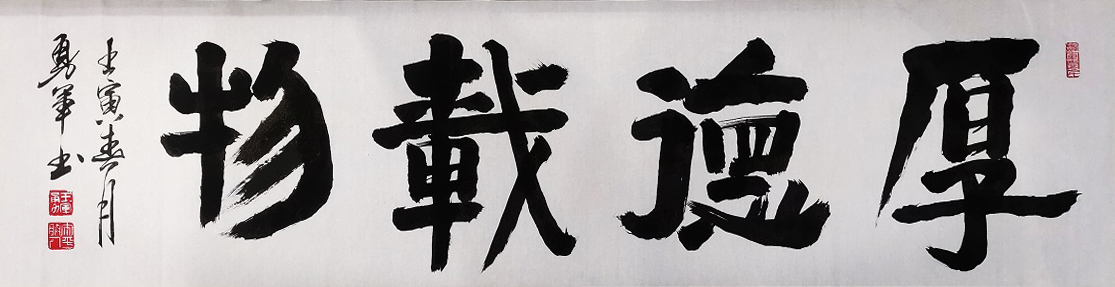 厚德載物
壬寅春月
勇軍书